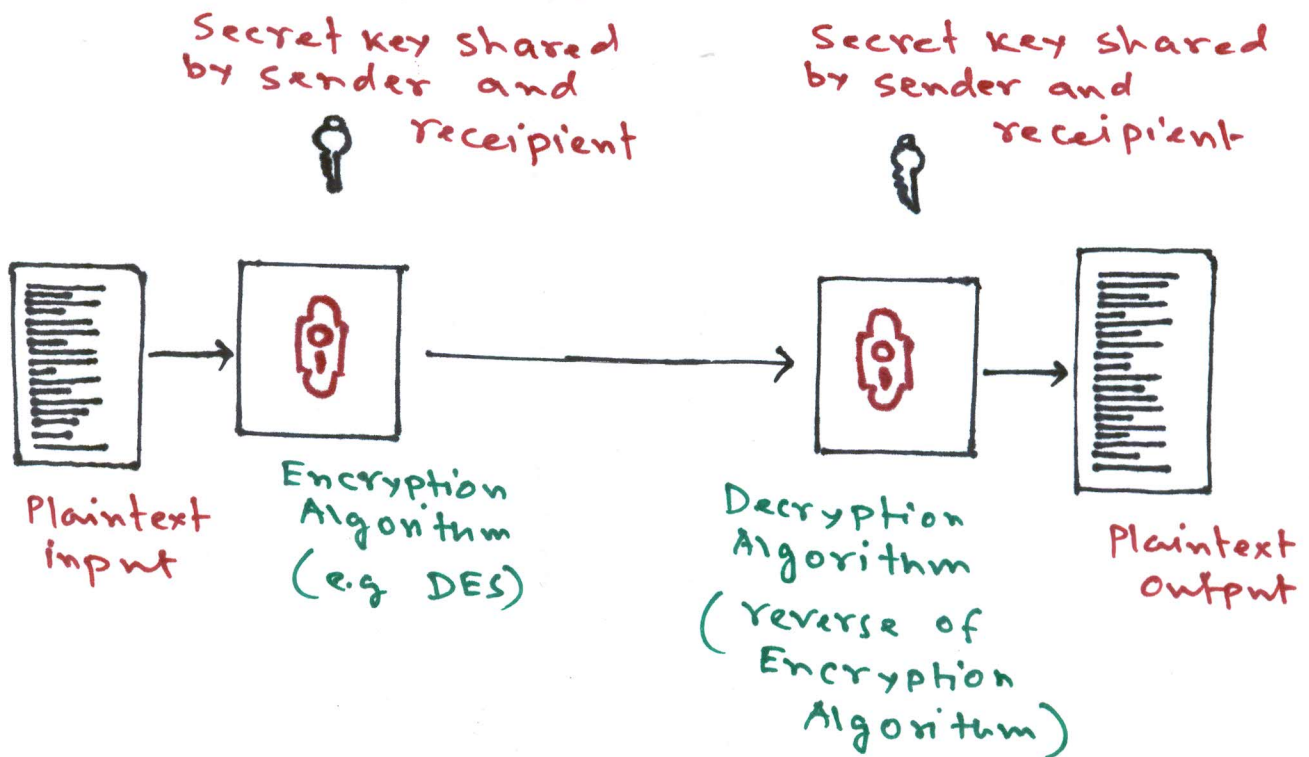 Secret key shared
by sender and
receipient
Secret key shared
by sender and
receipient
Plaintext
input
Encryption
Algorithm
(e.g DES)
Decryption
Algorithm
(reverse of
Encryption
Algorithm)
Plaintext
output